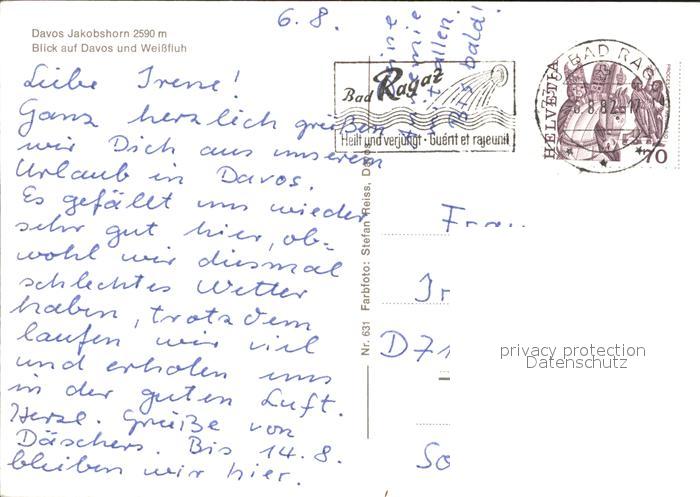 Davos Jakobshorn 2590 m
Blick auf Davos und Weißfluh
6.8.
Liebe Irene!
Ganz herzlich grüßen
wir Dich aus unserem
Urlaub in Davos.
Es gefällt uns wieder
sehr gut hier, ob-
wohl wir diesmal
schlechtes Wetter
haben, trotzdem
laufen wir viel
und erholen uns
in der guten Luft.
Herzl. Grüße von
Däschers. Bis 14.8.
bleiben wir hier.
Bis bald!
Bad Ragaz
Heilt und verjüngt · Guérit et rajeunit
BAD RAGAZ
8.82
HELVETIA
70
Nr. 631 Farbfoto: Stefan Reiss, Davos
Frau
Ir
D71
So
privacy protection
Datenschutz